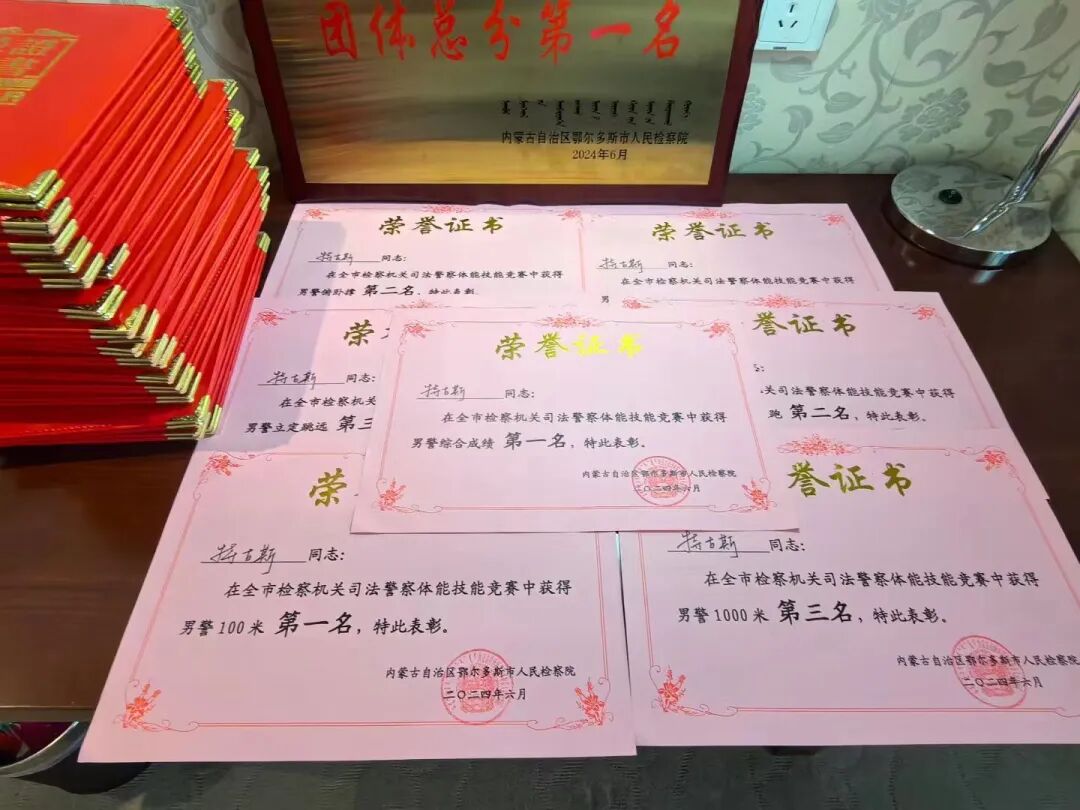 团体总分第一名
内蒙古自治区鄂尔多斯市人民检察院
2024年6月
荣誉证书
特古斯 同志：
在全市检察机关司法警察体能技能竞赛中获得
男警俯卧撑 第二名，特此表彰。
荣誉证书
特古斯 同志：
在全市检察机关司法警察体能技能竞赛中获得
男
荣
特古斯 同志：
在全市检察机关
男警立定跳远 第三
荣誉证书
特古斯 同志：
在全市检察机关司法警察体能技能竞赛中获得
男警综合成绩 第一名，特此表彰。
内蒙古自治区鄂尔多斯市人民检察院
二〇二四年六月
誉证书
关司法警察体能技能竞赛中获得
跑 第二名，特此表彰。
荣
特古斯 同志：
在全市检察机关司法警察体能技能竞赛中获得
男警100米 第一名，特此表彰。
内蒙古自治区鄂尔多斯市人民检察院
二〇二四年六月
誉证书
特古斯 同志：
在全市检察机关司法警察体能技能竞赛中获得
男警1000米 第三名，特此表彰。
内蒙古自治区鄂尔多斯市人民检察院
二〇二四年六月